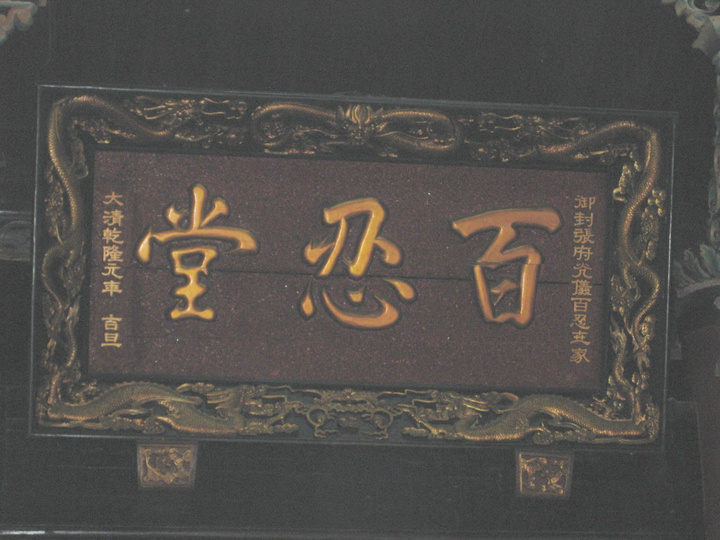 御封張府允儀百忍世家
百忍堂
大清乾隆元年 吉旦